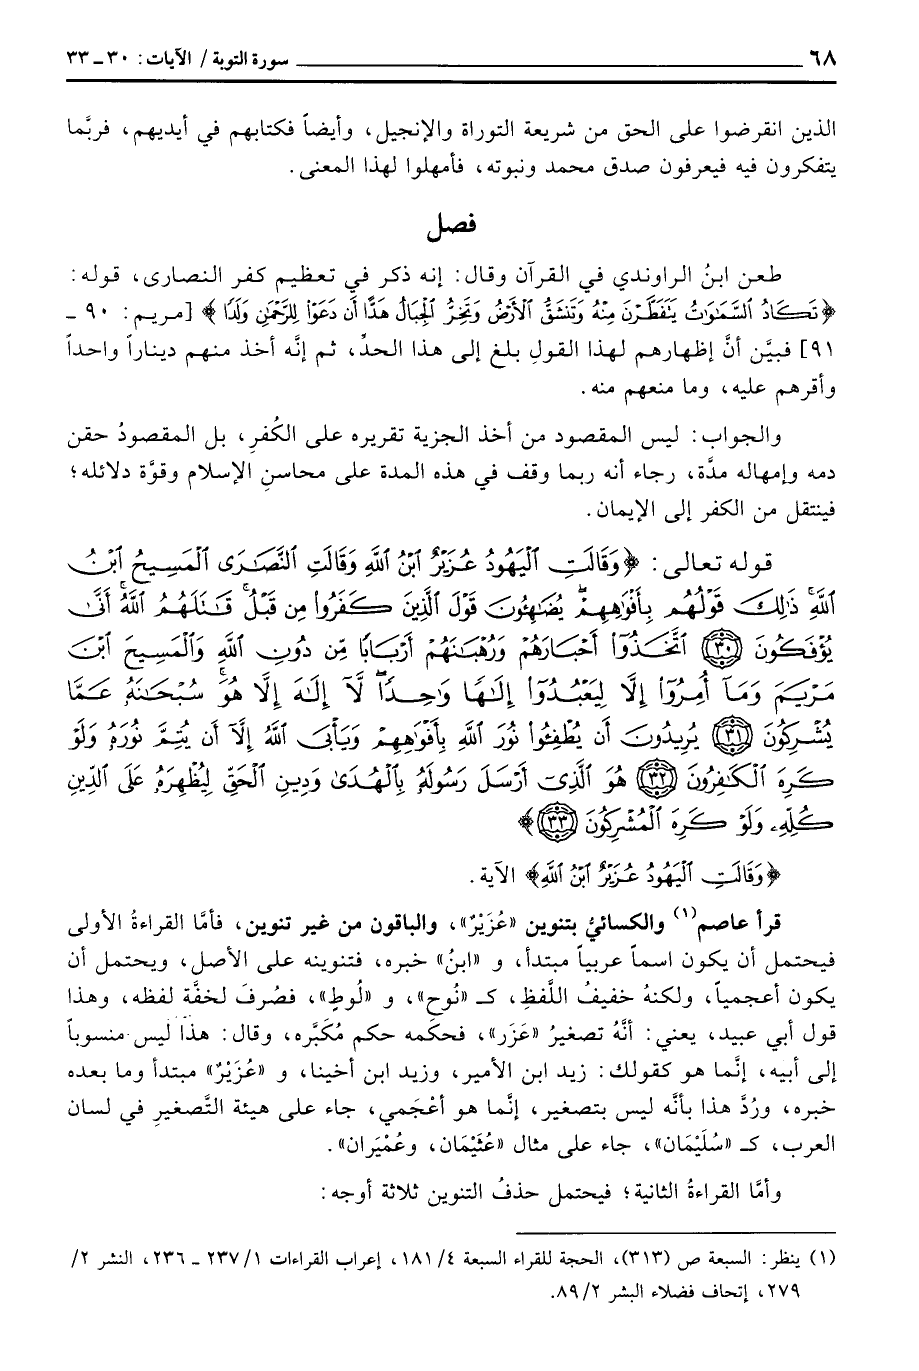 ٦٨ سورة التوبة / الآيات: ٣٠ ـ ٣٣
الذين انقرضوا على الحق من شريعة التوراة والإنجيل، وأيضاً فكتابهم في أيديهم، فربَّما
يتفكرون فيه فيعرفون صدق محمد ونبوته، فأمهلوا لهذا المعنى.
فصل
طعن ابنُ الراوندي في القرآن وقال: إنه ذكر في تعظيم كفر النصارى، قوله:
﴿تَكَادُ ٱلسَّمَٰوَٰتُ يَتَفَطَّرْنَ مِنْهُ وَتَنشَقُّ ٱلْأَرْضُ وَتَخِرُّ ٱلْجِبَالُ هَدًّا أَن دَعَوْا لِلرَّحْمَٰنِ وَلَدًا﴾ [مريم: ٩٠ ـ
٩١] فبيَّن أنَّ إظهارهم لهذا القولِ بلغ إلى هذا الحدِّ، ثم إنَّه أخذ منهم ديناراً واحداً
وأقرهم عليه، وما منعهم منه.
والجواب: ليس المقصود من أخذ الجزية تقريره على الكُفرِ، بل المقصودُ حقن
دمه وإمهاله مدَّة، رجاء أنه ربما وقف في هذه المدة على محاسنِ الإسلام وقوَّة دلائله؛
فينتقل من الكفر إلى الإيمان.
قوله تعالى: ﴿وَقَالَتِ ٱلْيَهُودُ عُزَيْرٌ ٱبْنُ ٱللَّهِ وَقَالَتِ ٱلنَّصَٰرَى ٱلْمَسِيحُ ٱبْنُ
ٱللَّهِ ذَٰلِكَ قَوْلُهُم بِأَفْوَٰهِهِمْ يُضَٰهِـُٔونَ قَوْلَ ٱلَّذِينَ كَفَرُوا۟ مِن قَبْلُ قَٰتَلَهُمُ ٱللَّهُ أَنَّىٰ
يُؤْفَكُونَ ٣٠ ٱتَّخَذُوٓا۟ أَحْبَارَهُمْ وَرُهْبَٰنَهُمْ أَرْبَابًا مِّن دُونِ ٱللَّهِ وَٱلْمَسِيحَ ٱبْنَ
مَرْيَمَ وَمَآ أُمِرُوٓا۟ إِلَّا لِيَعْبُدُوٓا۟ إِلَٰهًا وَٰحِدًا لَّآ إِلَٰهَ إِلَّا هُوَ سُبْحَٰنَهُۥ عَمَّا
يُشْرِكُونَ ٣١ يُرِيدُونَ أَن يُطْفِـُٔوا۟ نُورَ ٱللَّهِ بِأَفْوَٰهِهِمْ وَيَأْبَى ٱللَّهُ إِلَّآ أَن يُتِمَّ نُورَهُۥ وَلَوْ
كَرِهَ ٱلْكَٰفِرُونَ ٣٢ هُوَ ٱلَّذِىٓ أَرْسَلَ رَسُولَهُۥ بِٱلْهُدَىٰ وَدِينِ ٱلْحَقِّ لِيُظْهِرَهُۥ عَلَى ٱلدِّينِ
كُلِّهِۦ وَلَوْ كَرِهَ ٱلْمُشْرِكُونَ ٣٣﴾
﴿وَقَالَتِ ٱلْيَهُودُ عُزَيْرٌ ٱبْنُ ٱللَّهِ﴾ الآية.
قرأ عاصم(١) والكسائيُّ بتنوين «عُزَيْرٌ»، والباقون من غير تنوين، فأمَّا القراءةُ الأولى
فيحتمل أن يكون اسماً عربياً مبتدأ، و «ابنُ» خبره، فتنوينه على الأصل، ويحتمل أن
يكون أعجمياً، ولكنهُ خفيفُ اللَّفظِ، كـ «نُوح»، و «لُوطٍ»، فصُرفَ لخفَّة لفظه، وهذا
قول أبي عبيد، يعني: أنَّهُ تصغيرُ «عَزَر»، فحكمه حكم مُكَبَّره، وقال: هذا ليس منسوباً
إلى أبيه، إنَّما هو كقولك: زيد ابن الأمير، وزيد ابن أخينا، و «عُزَيْرٌ» مبتدأ وما بعده
خبره، ورُدَّ هذا بأنَّه ليس بتصغير، إنَّما هو أعْجَمي، جاء على هيئة التَّصغيرِ في لسان
العرب، كـ «سُلَيْمَان»، جاء على مثال «عُثَيْمَان، وعُمْيَران».
وأمَّا القراءةُ الثانية؛ فيحتمل حذفُ التنوين ثلاثة أوجه:
(١) ينظر: السبعة ص (٣١٣)، الحجة للقراء السبعة ٤/ ١٨١، إعراب القراءات ١/ ٢٣٧ ـ ٢٣٦، النشر ٢/
٢٧٩، إتحاف فضلاء البشر ٢/ ٨٩.